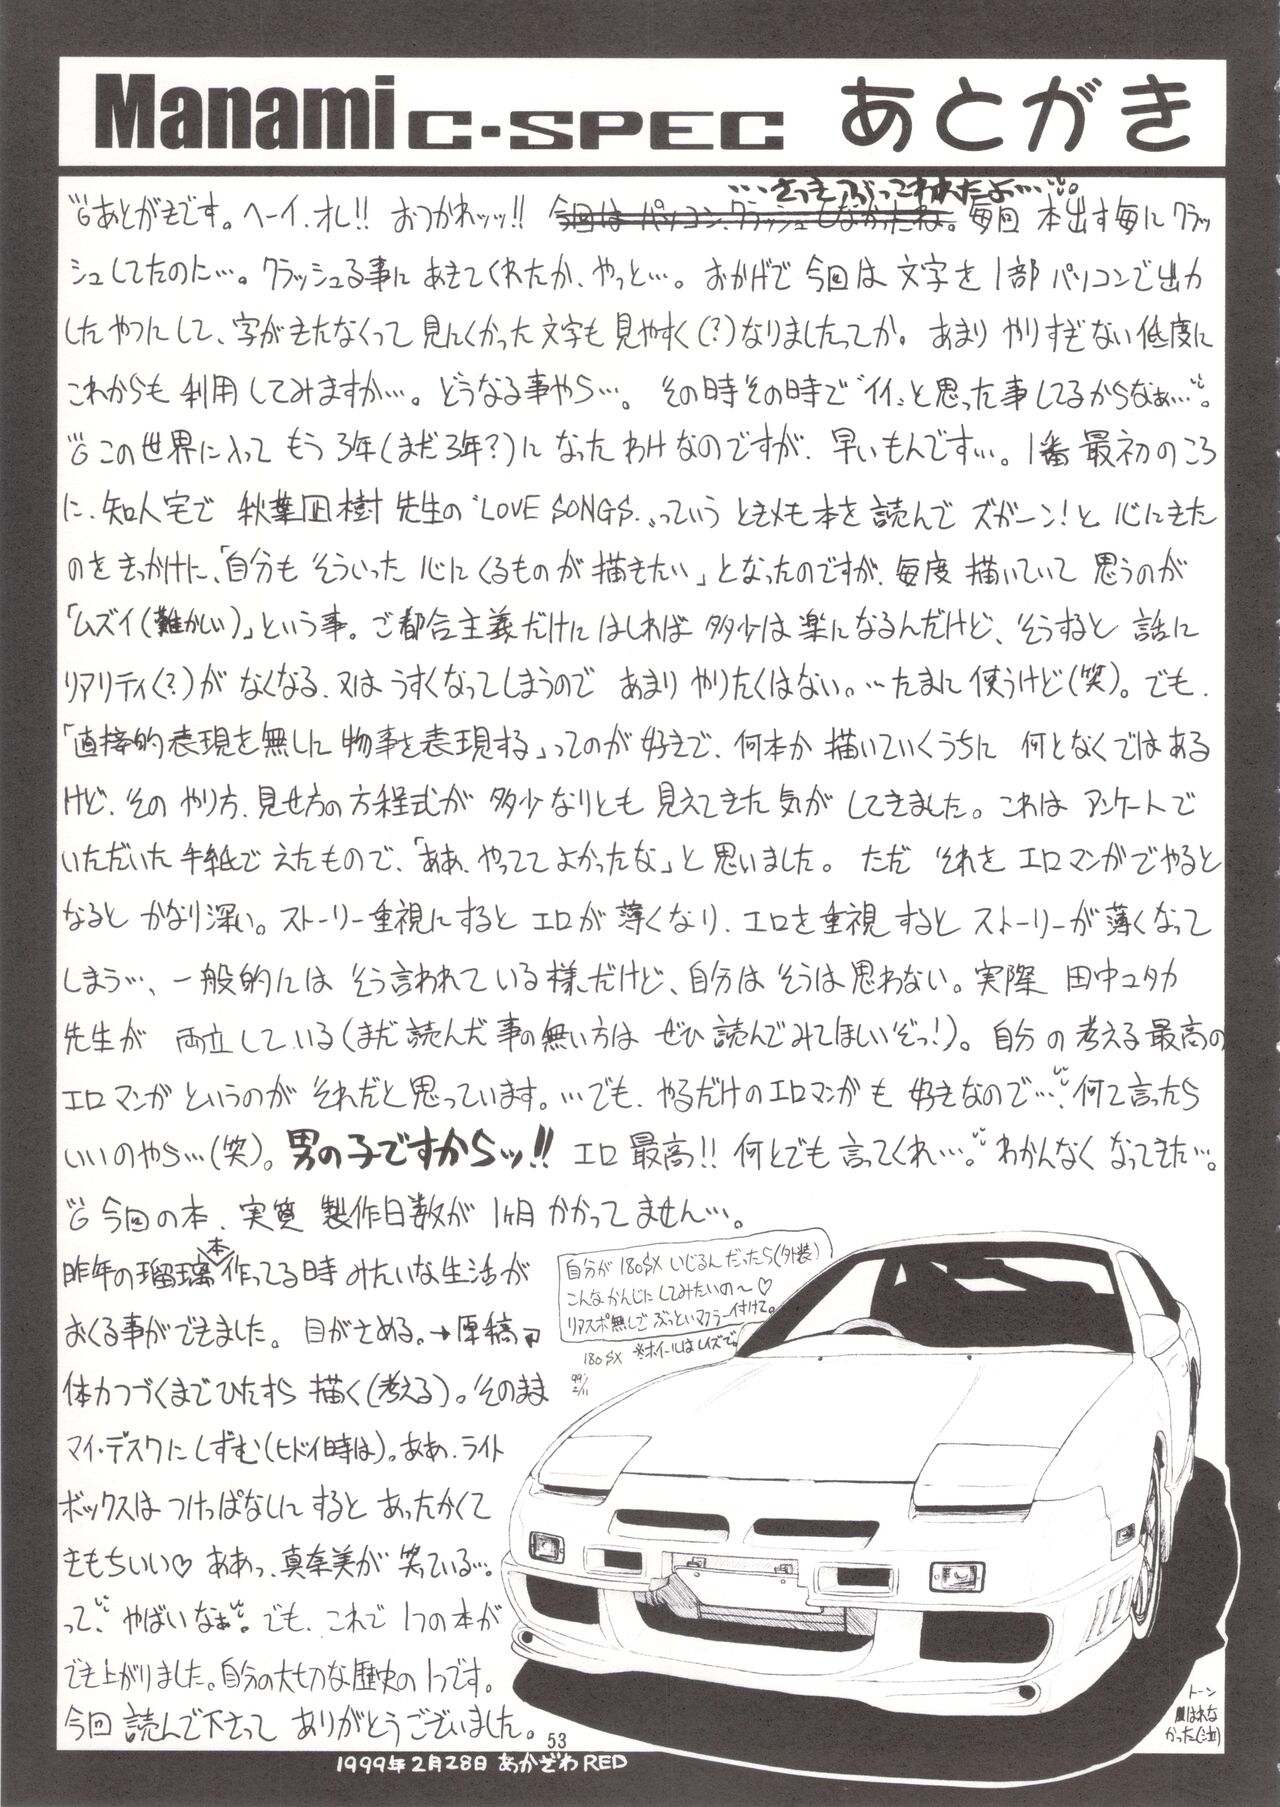 Manami C-SPEC あとがき
…さっきぶってわれたよ…。
あとがきです。ヘーイ、オレ!! おつかれッッ!! 今回はパソコン、クラッシュしなかったね。毎回 本出す毎に クラッ
シュしてたのに…。クラッシュる事に あきてくれたか、やっと…。おかげで 今回は 文字を 1部 パソコンで出力
したやつにして、字がきたなくって 見にくかった 文字も 見やすく(?)なりましたってか。あまり やりすぎない低度に
これからも 利用 してみますか…。どうなる事やら…。その時その時で"イイ"と思った事してるからなぁ…。
この世界に入って もう3年(まだ3年?)に なったわけなのですが、早いもんです…。1番 最初のころ
に、知人宅で 秋葉凪樹 先生の"LOVE SONGS"っていう ときメモ本を 読んで ズガーン!と 心にきた
のをきっかけに、「自分も そういった 心にくるものが 描きたい」となったのですが、毎度 描いていて 思うのが
「ムズイ(難かしい)」という事。ご都合主義だけに はしれば 多少は 楽に なるんだけど、そうすると 話に
リアリティ(?)が なくなる、又は うすくなってしまうので あまり やりたくはない。…たまに 使うけど(笑)。でも、
「直接的表現を無しに 物事を表現する」ってのが 好きで、何本か 描いていくうちに 何となくではある
けど、その やり方、見せ方の方程式が 多少なりとも 見えてきた 気が してきました。これは アンケートで
いただいた 手紙で えたもので、「ああ、やってて よかったな」と 思いました。ただ それを エロマンガでやると
なると かなり深い。ストーリー重視にすると エロが 薄くなり、エロを重視すると ストーリーが 薄くなって
しまう…、一般的には そう言われている様だけど、自分は そうは思わない。実際 田中ユタカ
先生が 両立している(まだ 読んだ事の無い方は ぜひ 読んでみてほしいぞっ!)。自分の考える最高の
エロマンガというのが それだと思っています。…でも、やるだけのエロマンガも 好きなので…、何て言ったら
いいのやら…(笑)。男の子ですからッ!! エロ 最高!! 何とでも 言ってくれ…。わかんなく なってきた…。
今回の本、実質 製作日数が 1ヶ月 かかってません…。
昨年の瑠璃本作ってる時 みたいな生活が
おくる事ができました。目がさめる。→原稿
体力つづくまでひたすら 描く(考える)。そのまま
マイ・デスクに しずむ(ヒドイ時は)。ああ、ライト
ボックスは つけっぱなしに すると あったかくて
きもちいい♡ ああっ、真奈美が 笑っている…。
って、やばいなぁ。でも、これで 1つの本が
でき上がりました。自分の大切な歴史の1つです。
今回 読んで下さって ありがとうございました。
自分が 180SX いじるんだったら(外装)
こんなかんじに してみたいの〜♡
リアスポ無しで ぶっといマフラー付けて。
180SX ※ホイールはレイズで。
99'
2/11
トーン
はれな
かった(泣)
53
1999年2月28日 あかざわRED